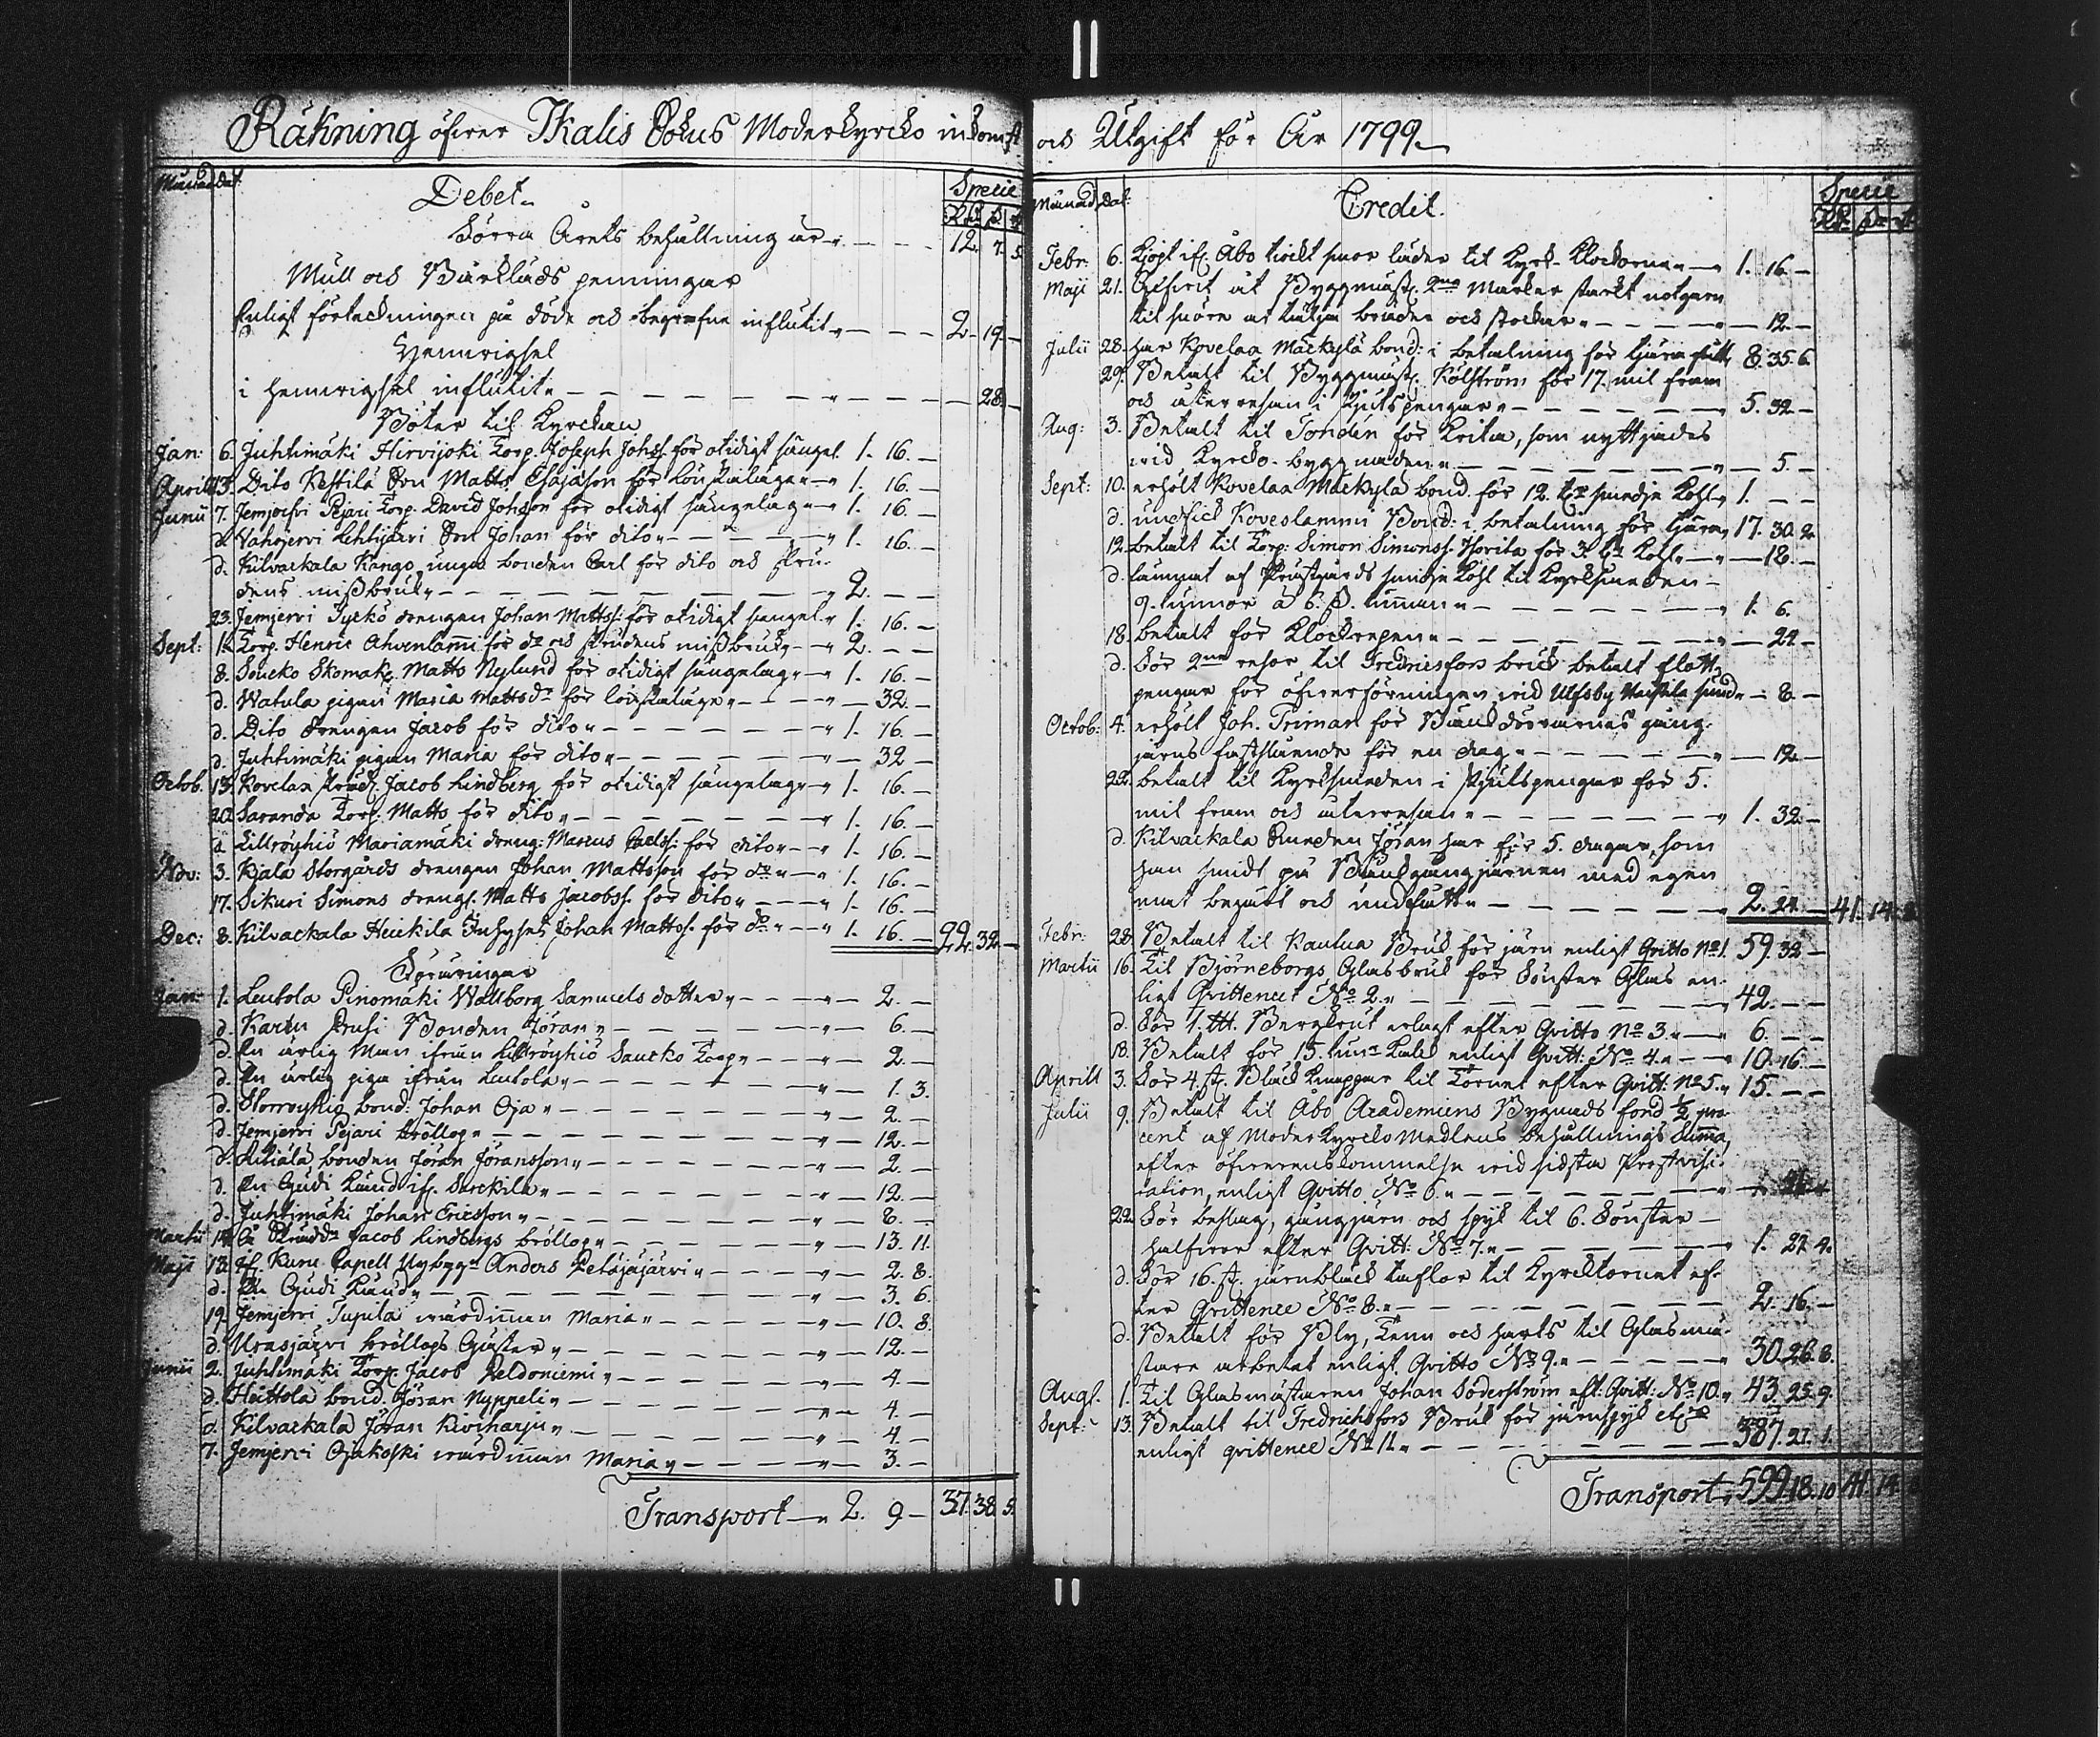 Räkning öfwer Ikalis Sokns Moderkyrcko inkomst
Månad dat
Debet.
Specie
Rd. ß. rst
Förra Årets behållning är 12. 7. 5.
Mull och Bårklädes penningar
Enligt förteckningen på döde och begrafne influtit 2. 19. —
Hemvighsel
i hemvighsel influtit — 28. —
Böter til Kyrckan
Jan: 6. Juhtimäki Hirvijoki Torp. Joseph Johss. för otidigt sängel. 1. 16. —
Aprill 13. Dito Kestilä Son Matts Esajasson för lönskaläge 1. 16. —
Junii 7. Jemjerfvi Pejari Torp. David Johsson för otidigt sängelag 1. 16. —
d. Vahojervi Lehtijärvi Son Johan för dito 1. 16. —
d. Kilvackala Kango unga bonden Carl för dito och Bru-
dens missbruk 2. — —
23. Jemjervi Jyckö drengen Johan Mattss: för otidigt sängel. 1. 16. —
Sept: 1. Torp. Henric Ahvenlammi för do och Brudens missbruk 2. — —
8. Soucko Skomak. Matts Nylund för otidigt sängelag 1. 16. —
d. Watula pigan Maria Mattsdr för lönskaläge — 32. —
d. Dito Drengen Jacob för dito 1. 16. —
d. Juhtimäki pigan Maria för dito — 32 —
Octob. 13. Kovelax Jacob Lindberg för otidigt sängelag 1. 16. —
20. Saranda Torp. Matts för dito 1. 16. —
d. Lillröyhiö Mariamäki dreng: Marcus Carlss: för dito 1. 16. —
Nov: 3. Kjala Storgårds drengen Johan Mattsson för do 1. 16. —
17. Sikuri Simons drengs. Matts Jacobss. för dito 1. 16. —
Dec: 8. Kilvackala Heickilä Inhyses Johan Mattss. för do 1. 16. — 22. 32. —
Föräringar
Jan: 1. Leutola Pinomäki Wallborg Samuels dotter — 2. —
d. Kartu Prusi Bonden Jöran — 6. —
d. En ärlig Man ifrån Lillröyhiö Saucko Torp — 2. —
d. En ärlig piga ifrån Leutola — 1. 3.
d. Storröyhiö bond: Johan Oja — 2. —
d. Jemjervi Pejari bröllop — 12. —
d. bonden Jöran Jöransson — 2. —
d. En Gudi Kund if. Sarckila — 12. —
d. Juhtimäki Johan Ericsson — 8. —
Martii 14. På Jacob Lindbergs bröllop — 13. 11.
Maji 13. if. Kuru Capell Nybygn Anders Petäjäjärvi — 2. 8.
d. En Gudi Kund — 3. 6.
19. Jemjervi Tupila wärdinnan Maria — 10. 8.
d. Urasjärvi bröllops Gäster — 12. —
Junii 2. Juhtimäki Torp. Jacob Peldoniemi — 4 —
d. Heittola bond. Jöran Nyppeli — 4. —
d. Kilvackala Jöran Kiviharju — 4 —
7. Jemjervi Ojakoski wärdinnan Maria — 3. —
Transport 2. 9 — 37. 38. 5.
och Utgift för År 1799.
Månad Dat:
Credit.
Specie
Rd. ß. rst
Febr: 6. Kjöpt if. Åbo läder til Kyrck-Klockorna 1. 16. —
Maji 21. Gifvit åt Byggmäst. 2ne Marker starkt notgarn
til snöre at täljja bräder och stockar — 12. —
Julii 28. har Kovelax Mäckylä bond: i betalning för tjära fått 8. 35. 6.
29. Betalt til Byggmäst. Kölström för 17. mil fram
och återresan i skjutspengar 5. 32 —
Aug: 3. Betalt til Tondin för Krita, som nyttjades
wid Kyrcko-byggnaden — 5. —
Sept: 10. erhölt Kovelax Mäckylä bond. för 12. tr smedje Kohl 1. — —
d. undfick Koveslammi Bond: i betalning för tjära 17. 30. 2.
12. betalt til Torp: Simon Simonss. för 3. tr Kohl — 18. —
d. lämnat af Prästgårds smidje Kohl til Kyrcksmeden
9. tunnor à 6. ß. tunnan 1. 6.
18. betalt för Klockrepen — 24. —
d. För 2ne resor til Fredricsfors bruk betalt flott
pengar för öfwerförningen wid Ulfsby sund — 8. —
Octob: 4. erhölt Joh. Friman för gång-
järns fastsläende för en dag — 12. —
22. betalt til Kyrcksmeden i skjutspengar för 5.
mil fram och återresan 1. 32. —
d. Kilvackala Smeden Jöran har för 5. dagar, som
han smidt på gångjärnen med egen
mat begärt och undfått 2. 24. — 41. 14. 8.
Febr: 28. Betalt til Kautua Bruk för järn enligt Qvitto No 1. 59. 32 —
Martii 16. Til Björneborgs Glasbruk för Fönster Glas en-
ligt Qvittence No 2. 42. — —
d. För 1. erlagt efter Qvitto No 3. 6. — —
18. Betalt för 15. tunr Kalck enligt Qvitt: No 4. 10. 16. —
Aprill 3. För 4. st. Knappar til Tornet efter Qvitt: No 5. 15. — —
Julii 9. Betalt til Åbo Academiens Bygnads fond ½ pro-
cent af Moderkyrcko Medlens behållnings Summa,
efter öfwerenskommelse wid sidsta Prostvisi-
tation, enligt Qvitto No 6.
22. För beslag, gångjärn och spik til 6. Fönster
halfvor efter Qvitt: No 7. 1. 27. 4.
d. För 16. st. järnblecks taflor til Kyrcktornet ef-
ter Qvittence No 8. 2. 16. —
d. Betalt för Bly, Tenn och harts til Glasmä-
stare arbetet enligt Qvitto No 9. 30. 26. 8.
Augs. 1. Til Glasmästaren Johan Söderström eft: Qvitt: No 10. 43. 25. 9.
Sept: 13. Betalt til Fredrichsfors Bruk för järnspik etc
enligt qvittence No 11. 387. 21. 1.
Transport 599. 18. 10 41. 14. 8